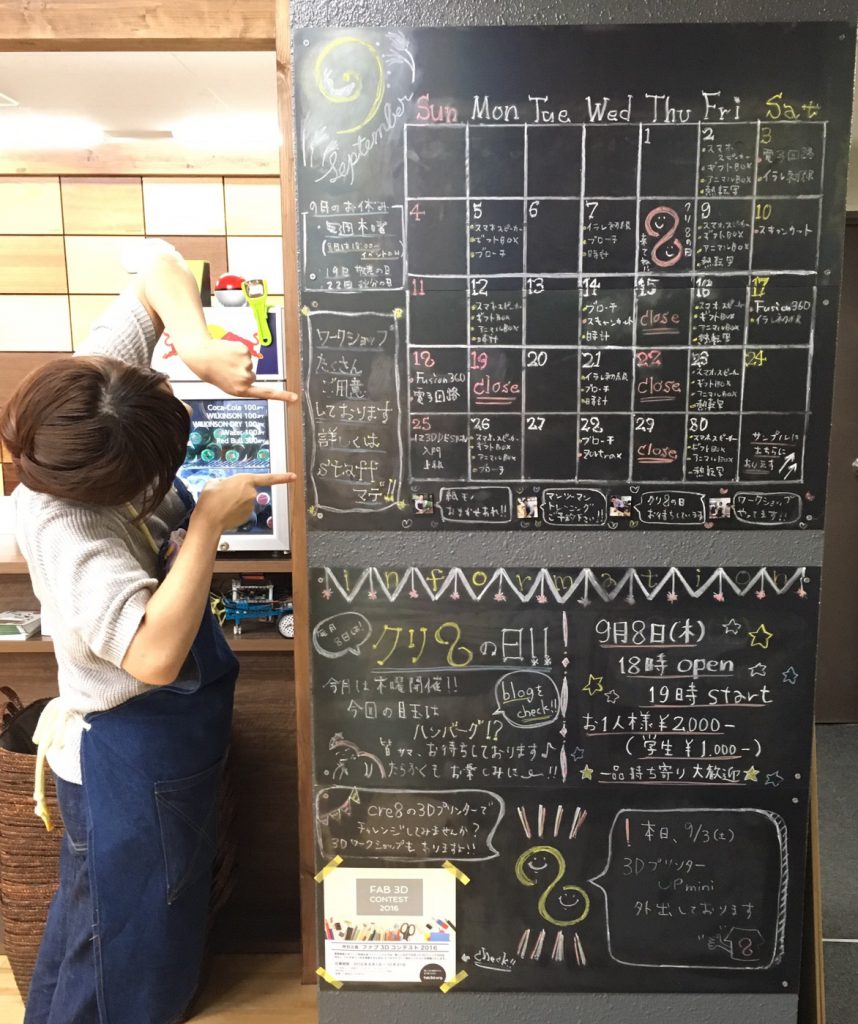 9
September
Sun Mon Tue Wed Thu Fri Sat
1 2 3
スマホスピーカー
ギフトBOX
アニマルBOX
熱転写
電子回路
4 5 6 7 クリ8の日 9 10
スマホスピーカー
ギフトBOX
ブローチ
ブローチ
時計
スマホスピーカー
ギフトBOX
アニマルBOX
熱転写
スキャンカット
11 12 13 14 15 16 17
スマホスピーカー
ギフトBOX
アニマルBOX
時計
ブローチ
スキャンカット
時計
close
スマホスピーカー
ギフトBOX
アニマルBOX
熱転写
Fusion360
18 19 20 21 22 23 24
Fusion360
電子回路
close
ブローチ
時計
close
スマホスピーカー
ギフトBOX
アニマルBOX
熱転写
25 26 27 28 29 30
入門
スマホスピーカー
ギフトBOX
アニマルBOX
ブローチ
ブローチ
close
スマホスピーカー
ギフトBOX
アニマルBOX
熱転写
サンプルは
こちらに
あります
9月のお休み
毎週木曜
19日 敬老の日
22日 秋分の日
ワークショップ
たくさん
ご用意
しております
詳しくは
staff
マデ!!
マンツーマン
トレーニング
クリ8の日
お待ちしている
ワークショップ
やってます!!
Coca-Cola 100
WILKINSON 100
WILKINSON DRY 100
Water 100
Red Bull 300
information
毎月
8日は!
クリ8の日!!
今月は木曜開催!!
今回の目玉は
ハンバーグ!?
blogを
check!!
皆サマ、お待ちしております♪
たらふくも お楽しみに〜!!
9月8日(木)
18時 open
19時 start
お1人様¥2,000-
(学生¥1,000-)
一品持ち寄り大歓迎
cre8の3Dプリンターで
チャレンジしてみませんか?
3Dワークショップもあります!!
FAB 3D
CONTEST
2016
ファブ3Dコンテスト2016
check!!
8
! 本日、9/3(土)
3Dプリンター
UP mini
外出しております
8